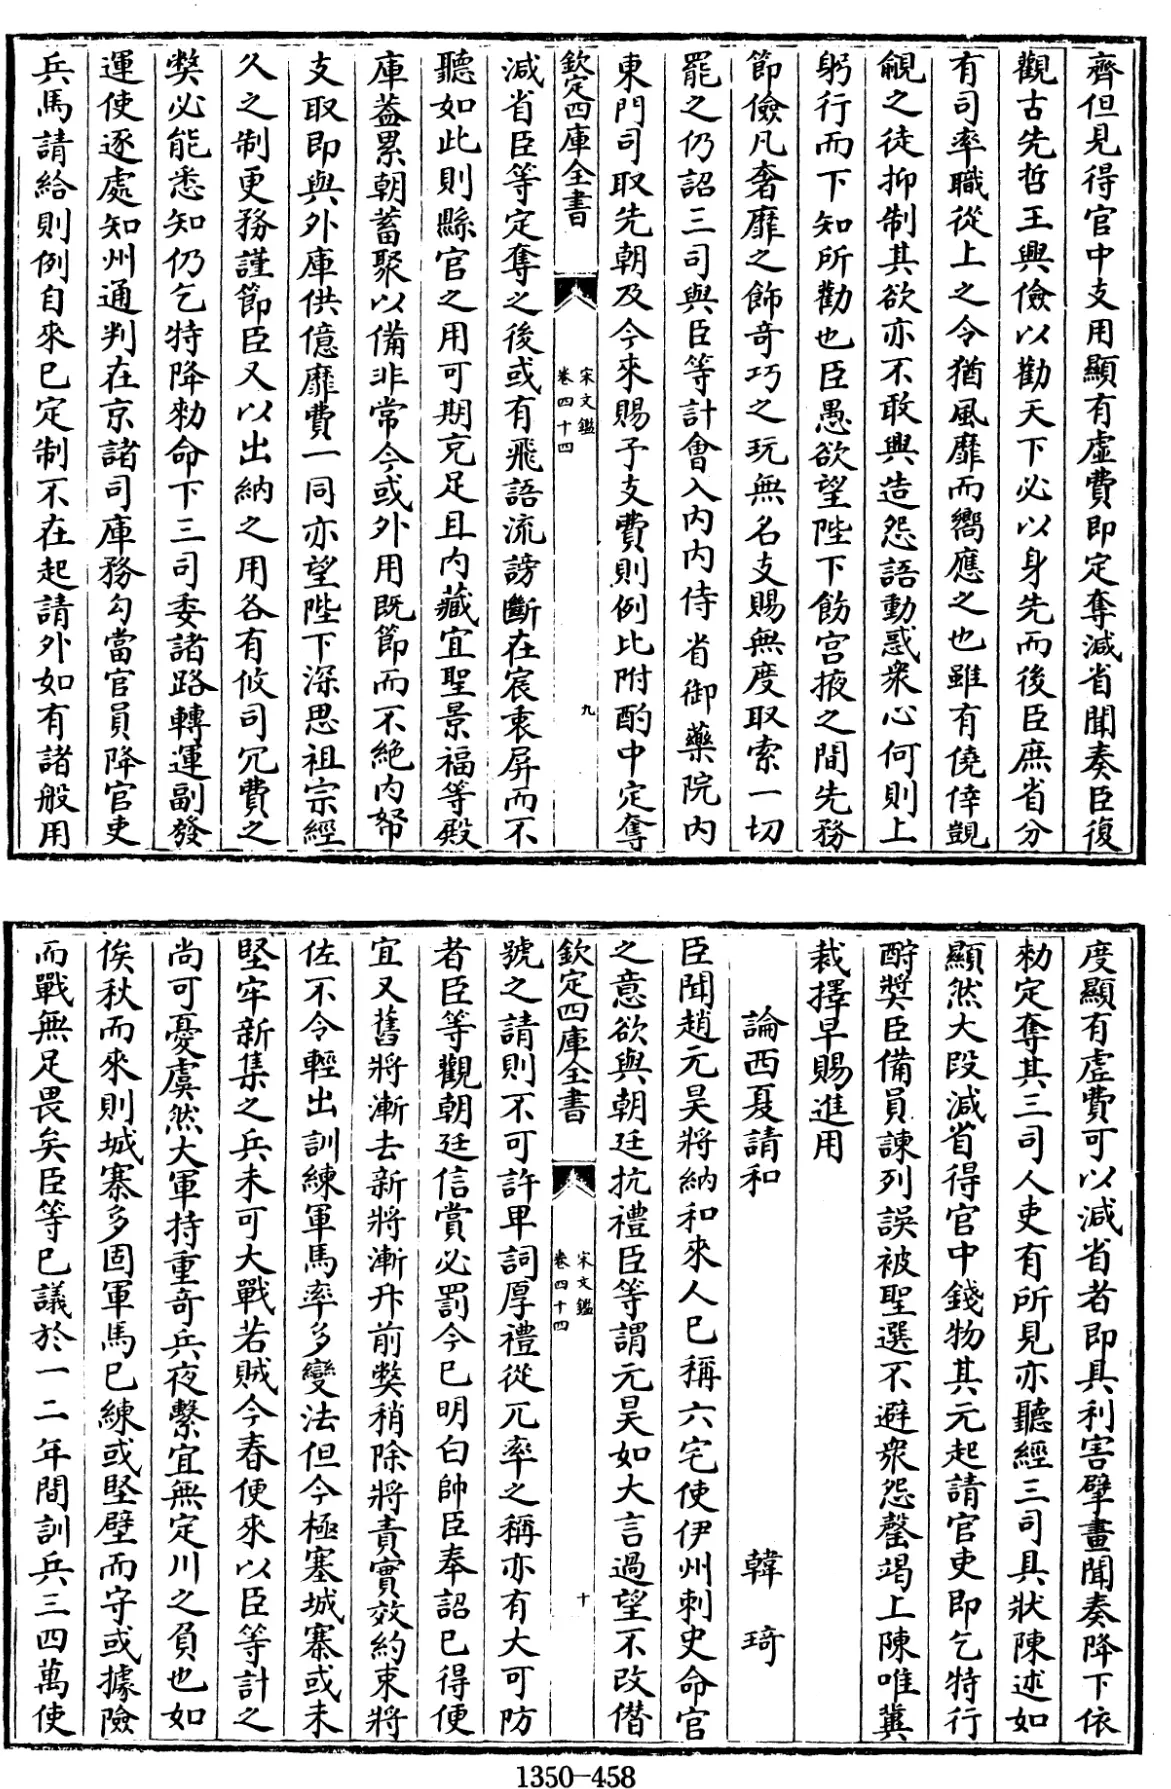 齊但見得官中支用顯有虛費即定奪減省聞奏臣復
觀古先哲王興儉以勸天下必以身先而後臣庶省分
有司率職從上之令猶風靡而嚮應之也雖有僥倖覬
覦之徒抑制其欲亦不敢興造怨語動惑衆心何則上
躬行而下知所勸也臣愚欲望陛下飭宫掖之間先務
節儉凡奢靡之飾奇巧之玩無名支賜無度取索一切
罷之仍詔三司與臣等計會入内内侍省御藥院内
東門司取先朝及今來賜予支費則例比附酌中定奪
欽定四庫全書
宋文鑑
卷四十四
九
減省臣等定奪之後或有飛語流謗斷在宸衷屏而不
聽如此則縣官之用可期充足且内藏宜聖景福等殿
庫葢累朝蓄聚以備非常今或外用既節而不絶内帑
支取即與外庫供億靡費一同亦望陛下深思祖宗經
久之制更務謹節臣又以出納之用各有攸司冗費之
弊必能悉知仍乞特降勑命下三司委諸路轉運副發
運使逐處知州通判在京諸司庫務勾當官員降官吏
兵馬請給則例自來已定制不在起請外如有諸般用
度顯有虛費可以減省者即具利害擘畫聞奏降下依
勑定奪其三司人吏有所見亦聽經三司具狀陳述如
顯然大段減省得官中錢物其元起請官吏即乞特行
酧奬臣備員諫列誤被聖選不避衆怨罄竭上陳唯冀
裁擇早賜進用
論西夏請和
韓琦
臣聞趙元昊將納和來人已稱六宅使伊州刺史命官
之意欲與朝廷抗禮臣等謂元昊如大言過望不改僭
欽定四庫全書
宋文鑑
卷四十四
十
號之請則不可許卑詞厚禮從兀率之稱亦有大可防
者臣等觀朝廷信賞必罰今已明白帥臣奉詔已得便
宜又舊將漸去新將漸升前弊稍除將責實效約束將
佐不令輕出訓練軍馬率多變法但今極塞城寨或未
堅牢新集之兵未可大戰若賊今春便來以臣等計之
尚可憂虞然大軍持重奇兵夜擊宜無定川之負也如
俟秋而來則城寨多固軍馬已練或堅壁而守或據險
而戰無足畏矣臣等已議於一二年間訓兵三四萬使
1350-458